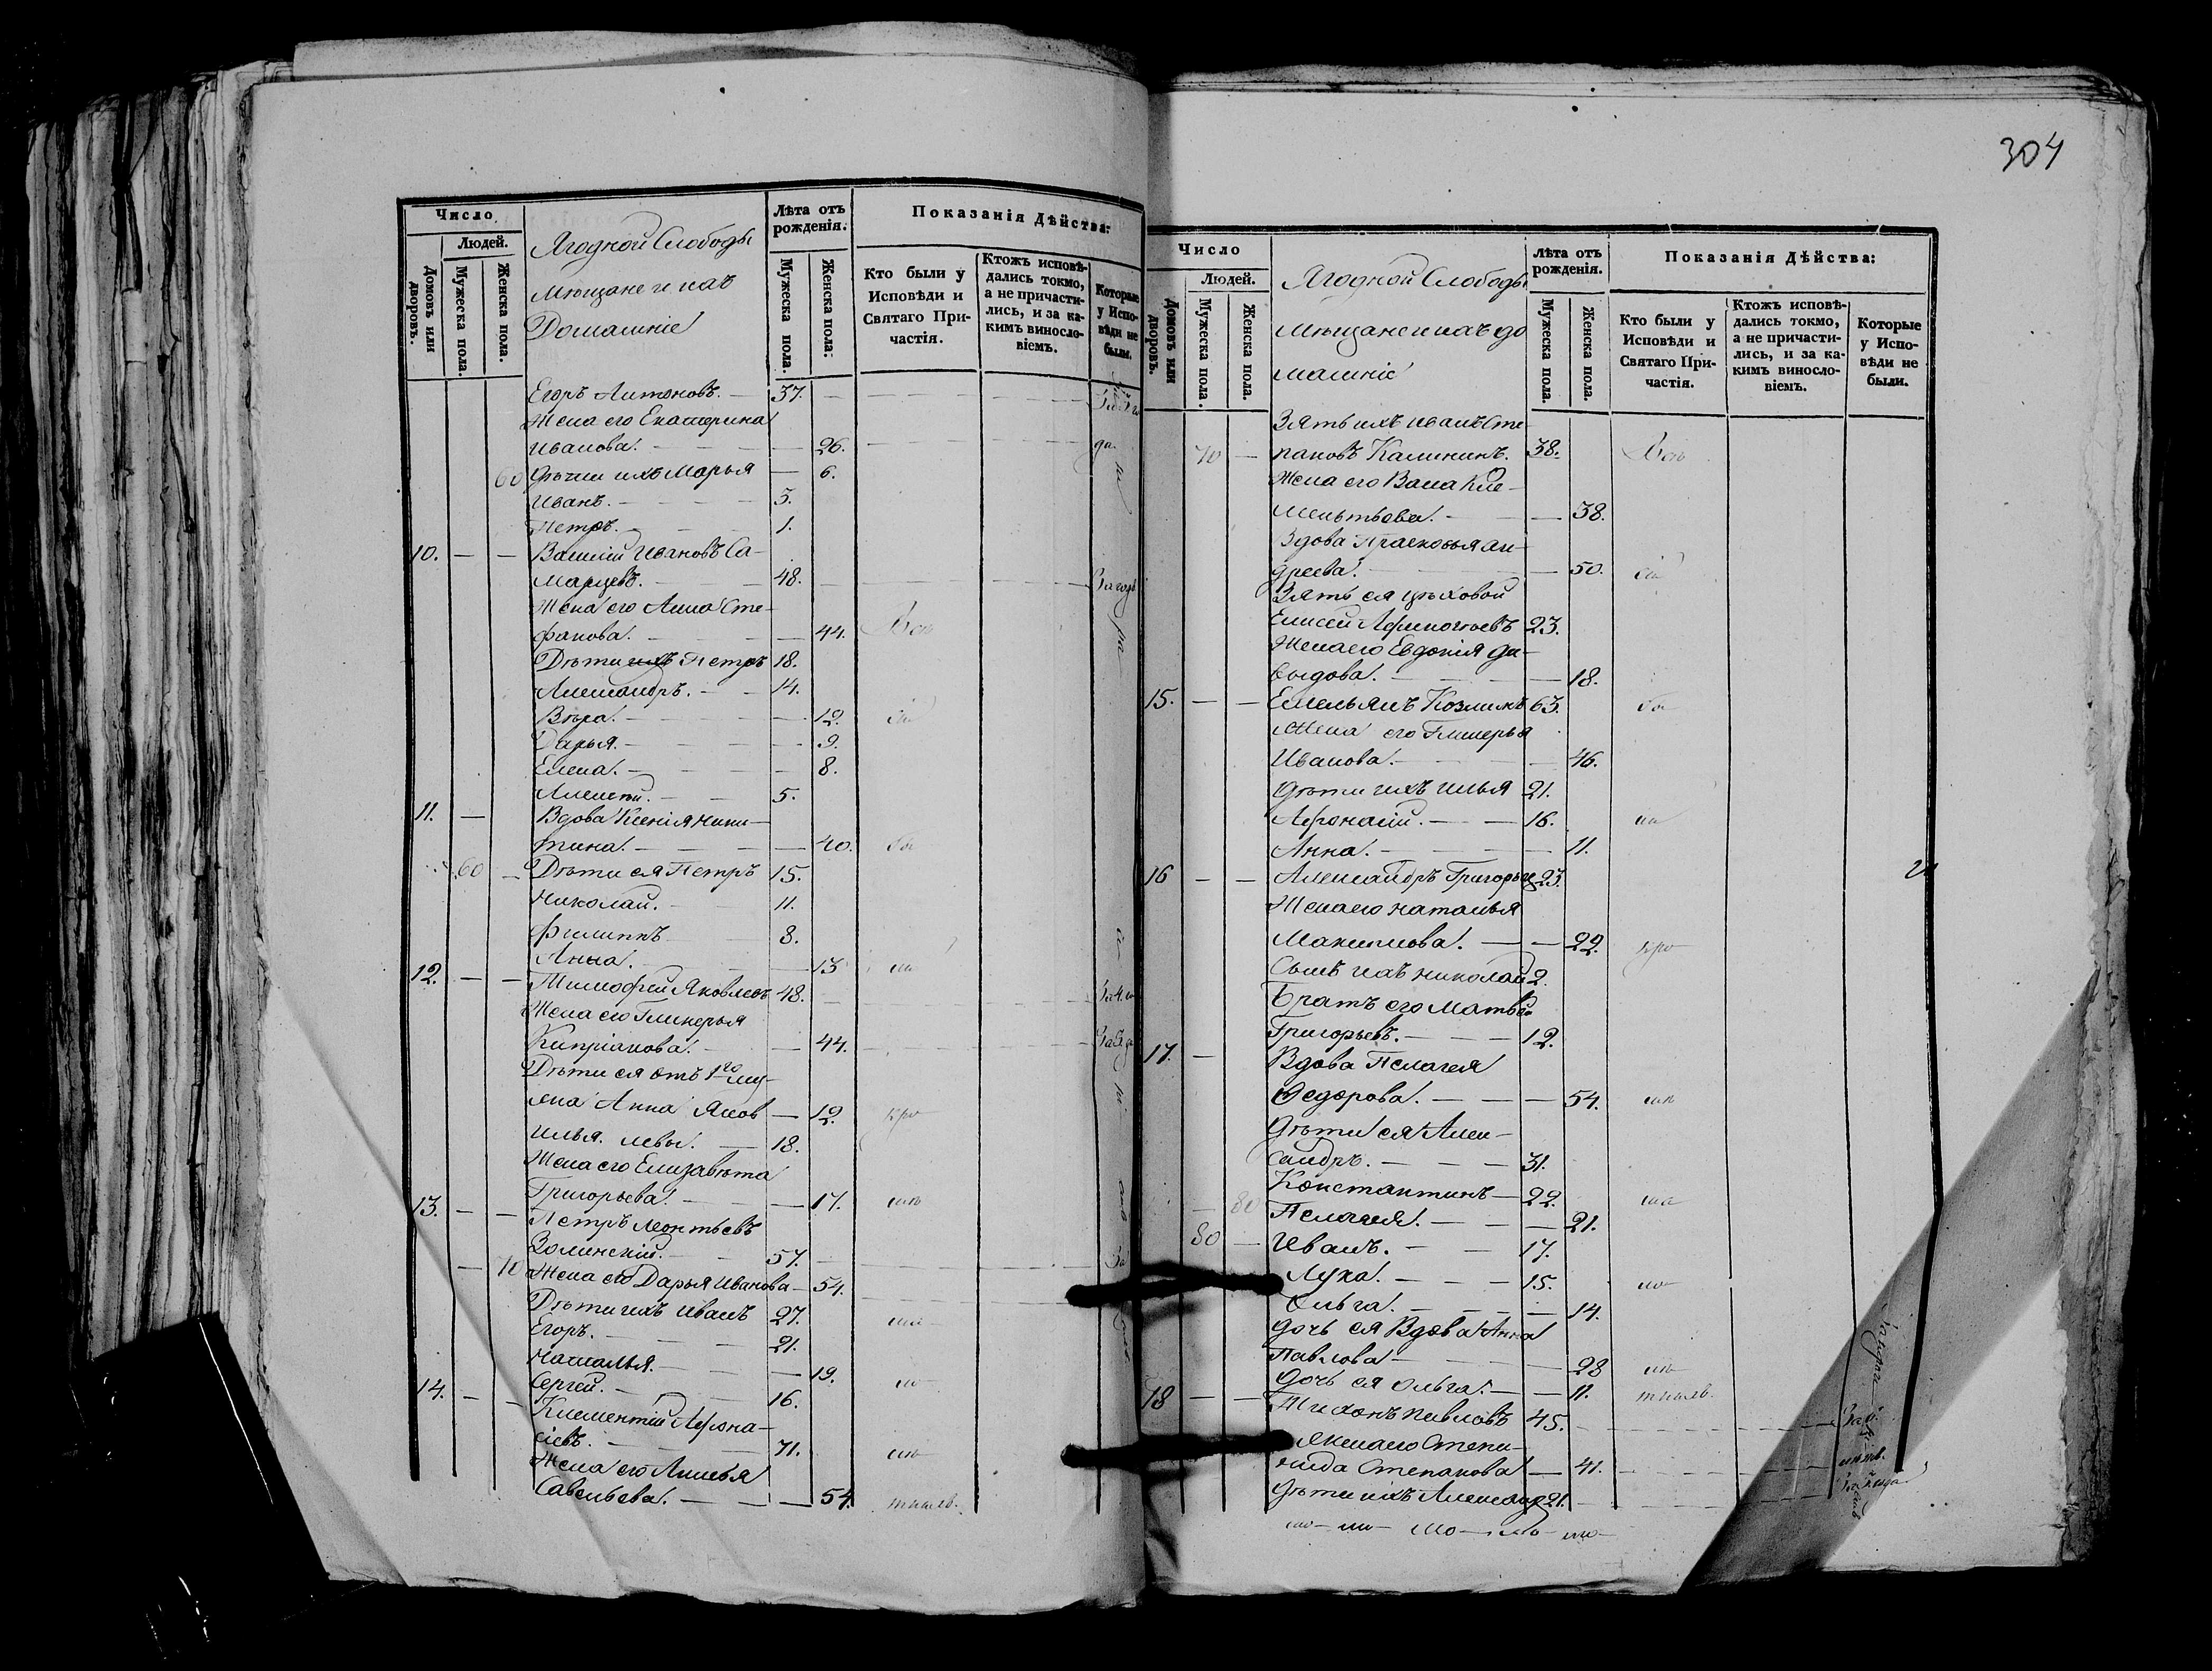 304
Число
Людей.
Домовъ или дворовъ.
Мужеска пола.
Женска пола.
Ягодной Слободы
Мѣщане и ихъ
Домашніе
Лѣта отъ рожденія.
Мужеска пола.
Женска пола.
Показанія Дѣйства:
Кто были у Исповѣди и Святаго Причастія.
Ктожъ исповѣдались токмо, а не причастились, и за какимъ винословіемъ.
Которые у Исповѣди не были.
Егоръ Антоновъ. 37.
Жена его Екатерина
Иванова. 26.
60 Дѣти ихъ Марья 6.
Иванъ. 3.
Петръ. 1.
10. Василій Ивановъ Са-
марцевъ. 48.
Жена его Анна Сте-
фанова. 44.
Дѣти ихъ Петръ 18.
Александръ. 14.
Вѣра. 12.
Дарья. 9.
Елена. 8.
Алексѣй. 5.
11. Вдова Ксенія Ники-
тина. 40. бы
60 Дѣти ея Петръ 15.
Николай. 11.
Филиппъ 8.
Анна. 13
12. Тимофей Яковлевъ 48.
Жена его Гликерья
Кипріанова. 44.
Дѣти ея отъ 1го му-
жа Анна Яков 12.
Илья. левы. 18.
Жена его Елизавета
Григорьева. 17.
13. Петръ Леонтьевъ
Золинскій. 57.
70 Жена его Дарья Иванова 54.
Дѣти ихъ Иванъ 27.
Егоръ. 21.
Наталья. 19.
Сергей. 16.
14. Климентій Афона-
сіевъ. 71.
Жена его Анисья
Савельева. 54.
Число
Людей.
Домовъ или дворовъ.
Мужеска пола.
Женска пола.
Ягодной Слободы
Мѣщане и ихъ до
машніе
Лѣта отъ рожденія.
Мужеска пола.
Женска пола.
Показанія Дѣйства:
Кто были у Исповѣди и Святаго Причастія.
Ктожъ исповѣдались токмо, а не причастились, и за какимъ винословіемъ.
Которые у Исповѣди не были.
Зять ихъ Иванъ Сте-
70 пановъ Калининъ. 38.
Жена его Васа Кле-
ментьева. 38.
Вдова Прасковья Ан-
дреева. 50.
Зять ея цѣховой
Елисей Афиногеевъ 23.
Жена его Евдокія Да-
выдова. 18.
15. Емельянъ Козминъ 63. бы
Жена его Гликерья
Иванова. 46.
Дѣти ихъ Илья 21.
Афонасій. 16.
Анна. 11.
16 Александръ Григорьев 23.
Жена его Наталья
Максимова. 22.
Сынъ ихъ Николай 2.
Братъ его Матвѣй
Григорьевъ. 12.
17. Вдова Пелагея
Федорова. 54.
Дѣти ея Алек-
сандръ. 31.
Константинъ 22.
80 Пелагея. 21.
80 Иванъ. 17.
Лука. 15.
Ольга. 14.
Дочь ея Вдова Анна
Павлова 28
Дочь ея Ольга. 11.
18 Тихонъ Павловъ 45.
Жена его Степа-
нида Степанова 41.
Дѣти ихъ Александ 21.